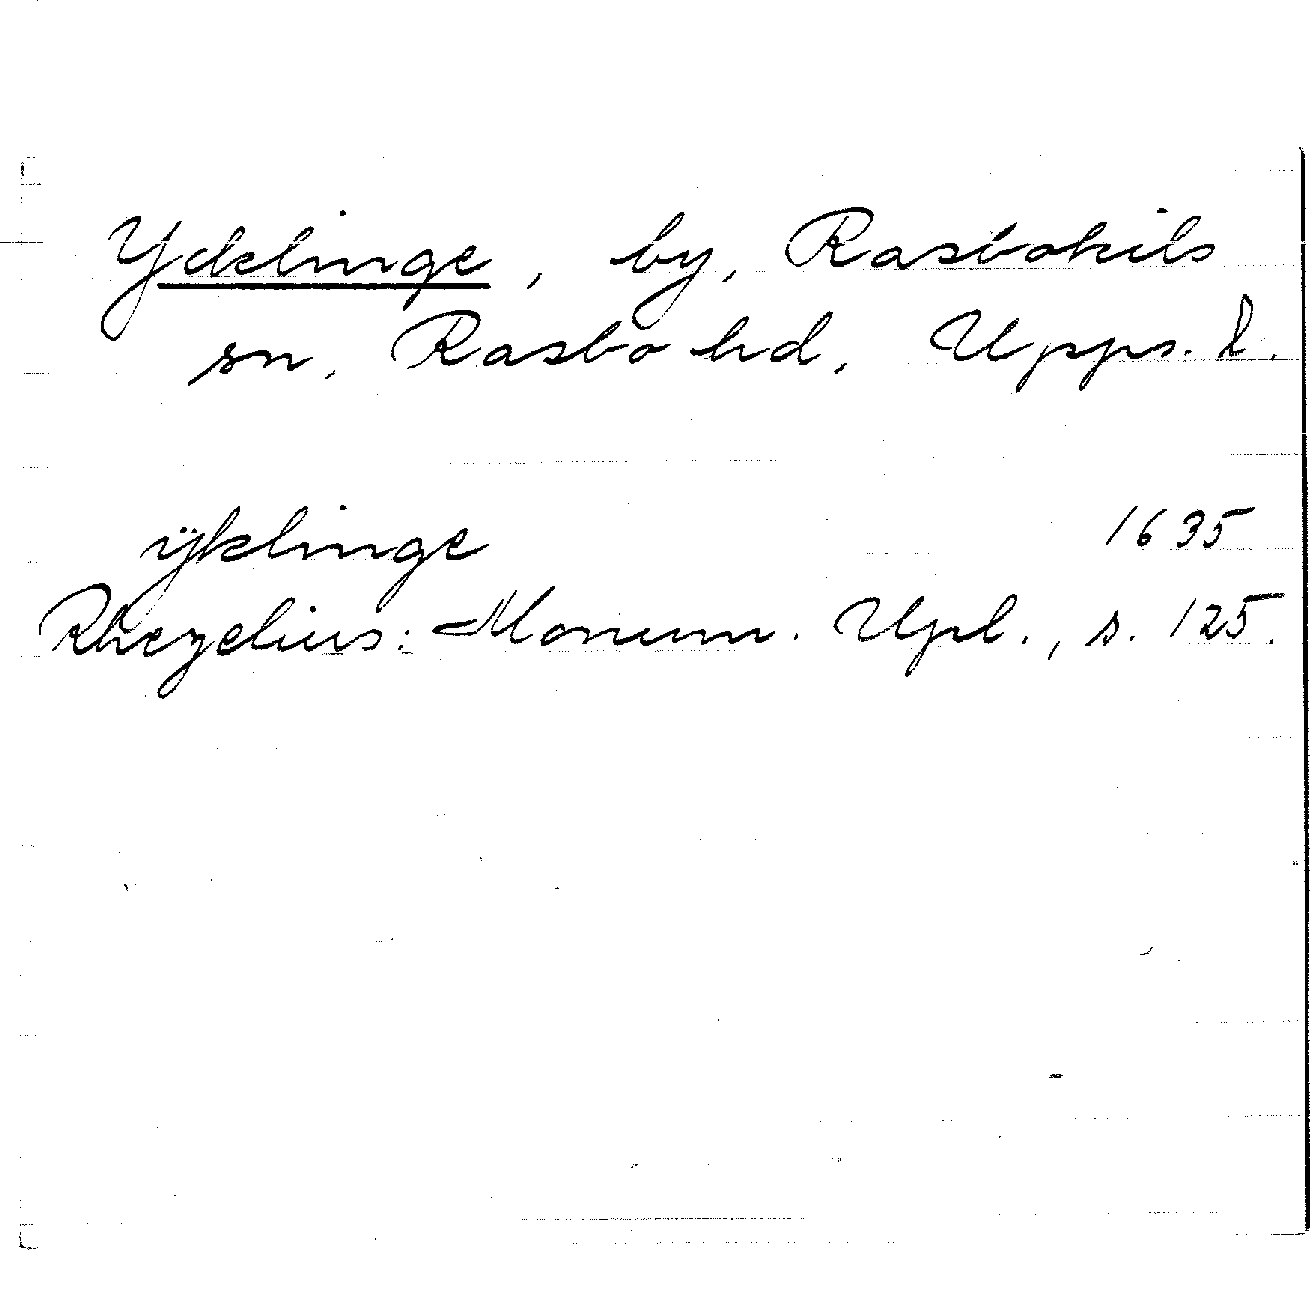 Ydklinge, by, Rasbokils
sn, Rasbo hd, Upps. l.
ÿklinge 1635
Rhezelius: Monum. Upl., s. 125.